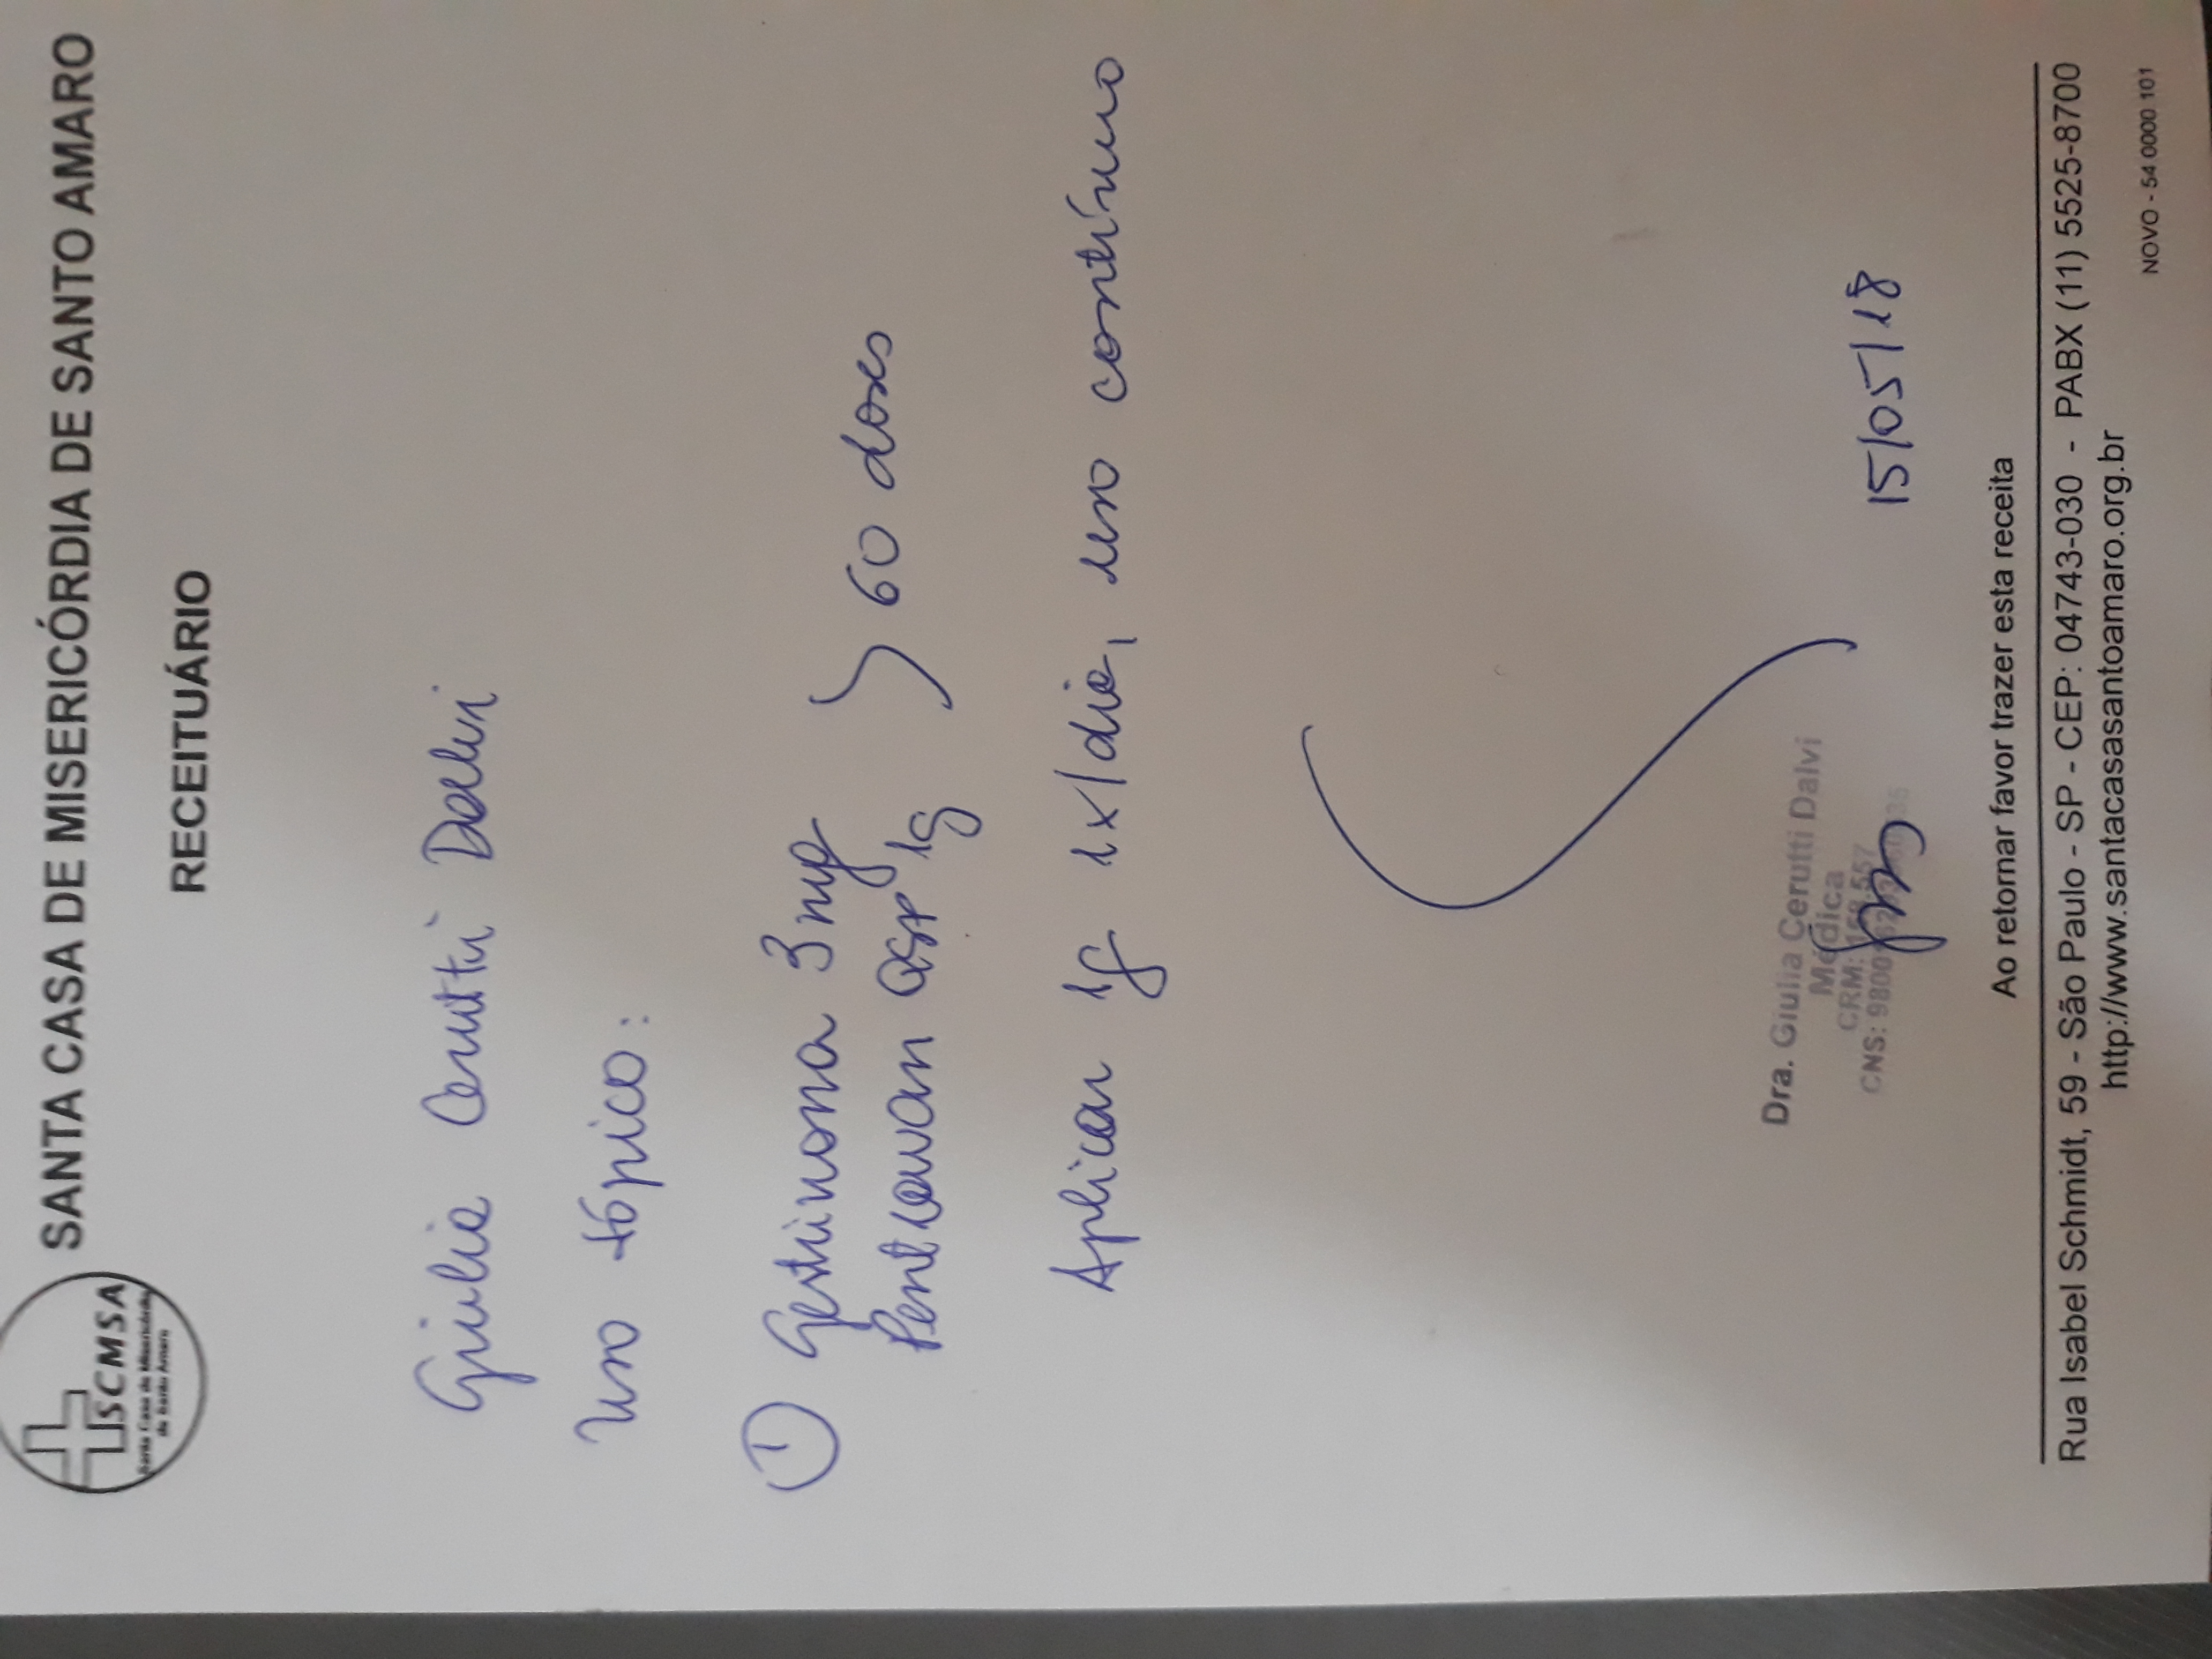 SCMSA
Santa Casa de Misericórdia
de Santo Amaro
SANTA CASA DE MISERICÓRDIA DE SANTO AMARO
RECEITUÁRIO
Giulia Cerutti Dalvi
Uso tópico:
① Gestrinona 3mg
Pentravan QSP 1g } 60 doses
Aplicar 1g 1x/dia, uso contínuo
Dra. Giulia Cerutti Dalvi
Médica
CRM:
CNS:
15/05/18
Ao retornar favor trazer esta receita
Rua Isabel Schmidt, 59 - São Paulo - SP - CEP: 04743-030 - PABX (11) 5525-8700
http://www.santacasasantoamaro.org.br
NOVO - 54 0000 101